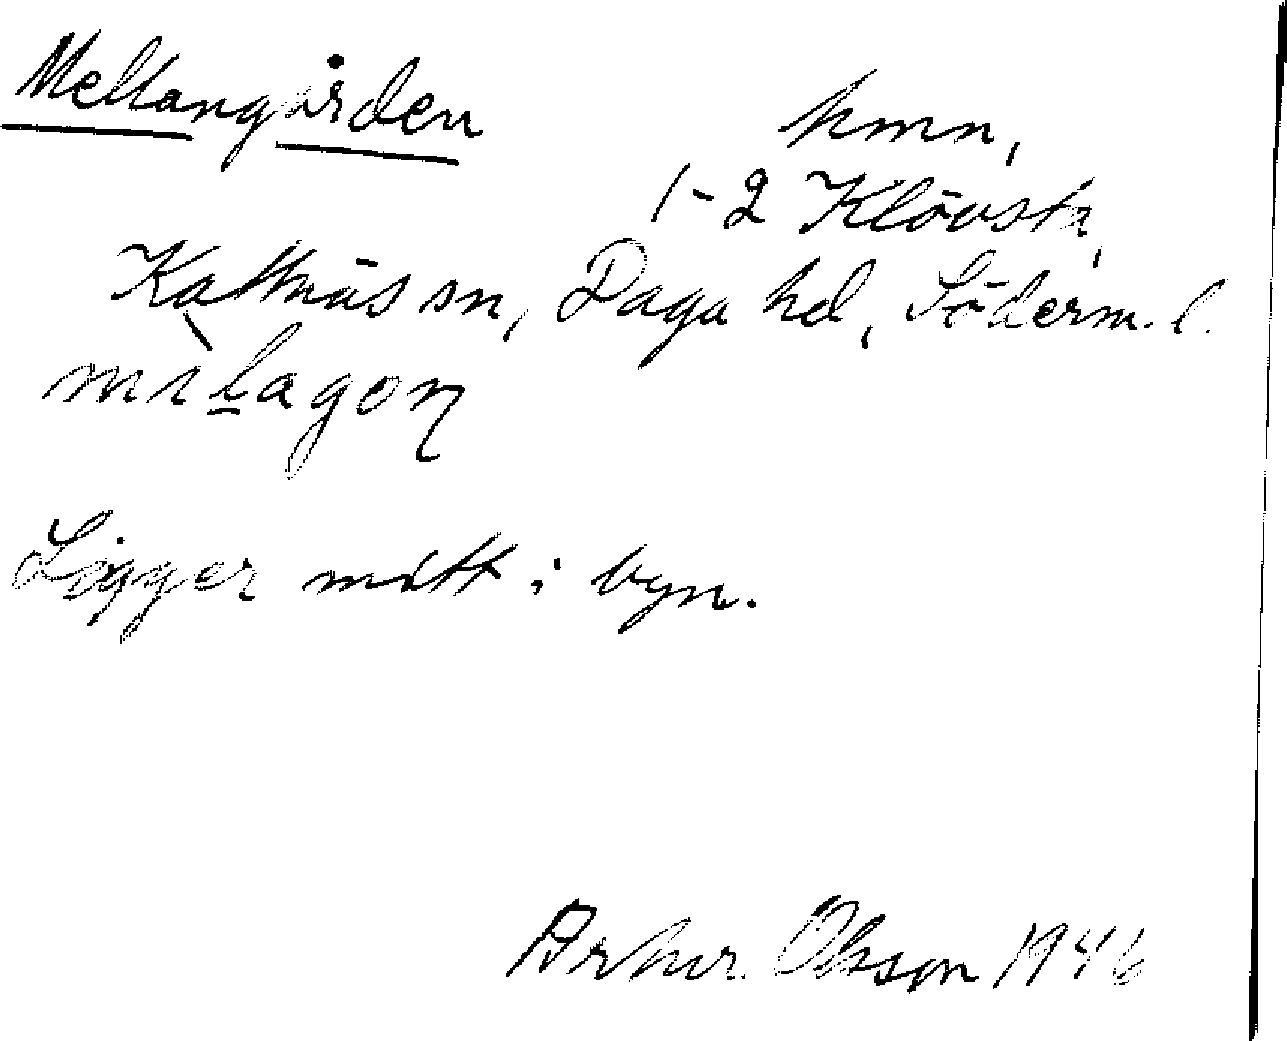 Mellangården
hmn,
1-2 Klövsta,
Kattnäs sn, Daga hd, Söderm. l.
Ligger mitt i byn.
Artur Olsson 1946